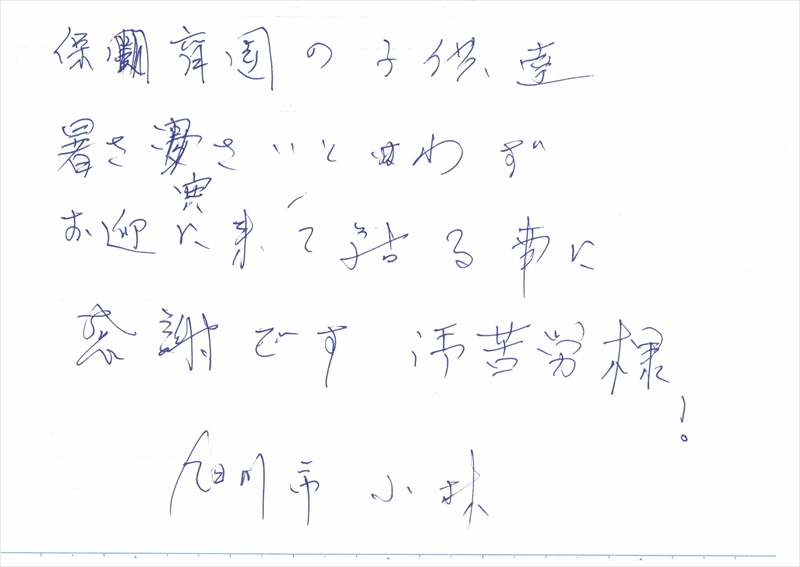 保育園の子供達
暑さ寒さいとわず
お迎に来て給る事に
感謝です 御苦労様!
旭川市 小林